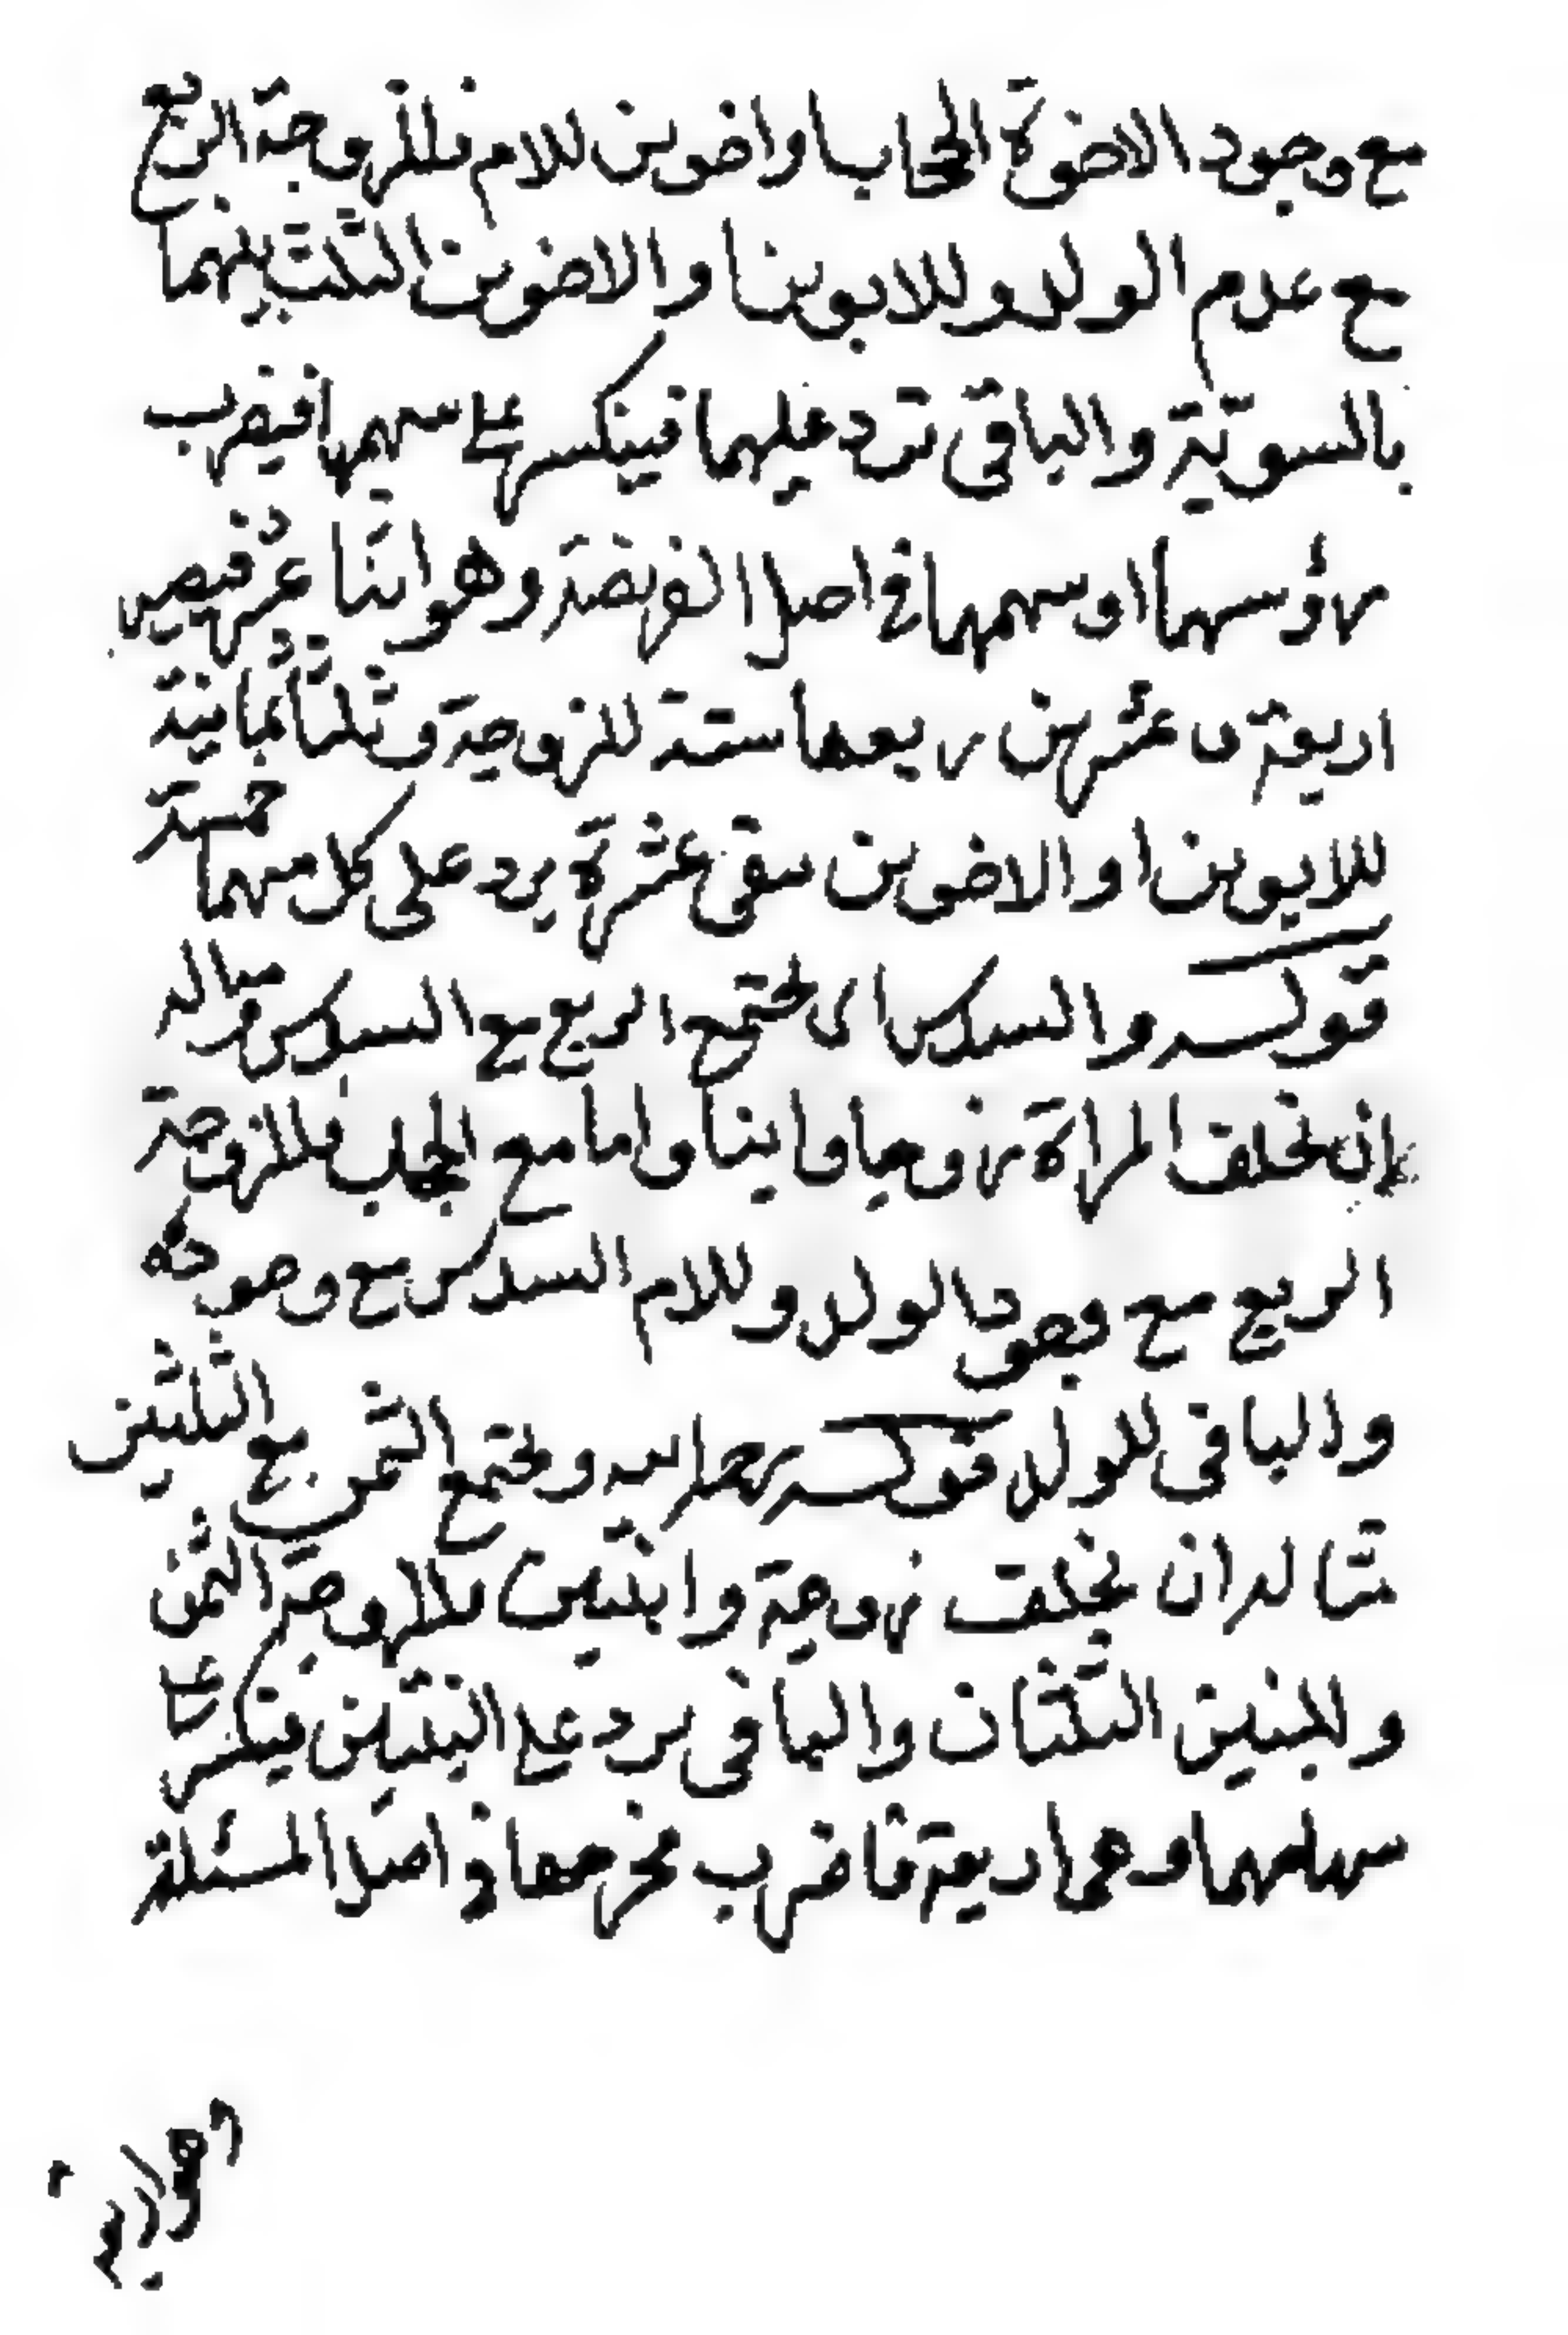 مع وجود الاخوة الحجاب او اخوين للام فللزوجة الربع
مع عدم الولد وللابوين او الاخوين الثلث بينهما
بالسويّة والباقى ترد عليهما فينكسر على سهيمها فيضرب
رؤسهما او سهمهما في اصل الفريضة وهو اثنا عشر فيصير
اربعة و عشرين ربعها ستة للزوجة وثلثا ثمانية
للابوين او الاخوين يبقى عشرة يرد على كل منهما خمسة
قوله والسدس اى يجتمع الربع مع السدس مثاله
ان تخلف المراة زوجا وابنا واما مع الحجاب فللزوجة
الربع مع وجود الولد وللام السدس مع وجوده
والباقى للولد قوله رحمه الله ويجتمع الثمن مع الثلثين
مثاله ان يخلف زوجة وابنتين فللزوجة الثمن
وللبنتين الثلثان والباقى يرد على البنتين فينكسر على
سهامهما وهما اربعة فاضرب مخرجها في اصل المسئلة
وهو اربع